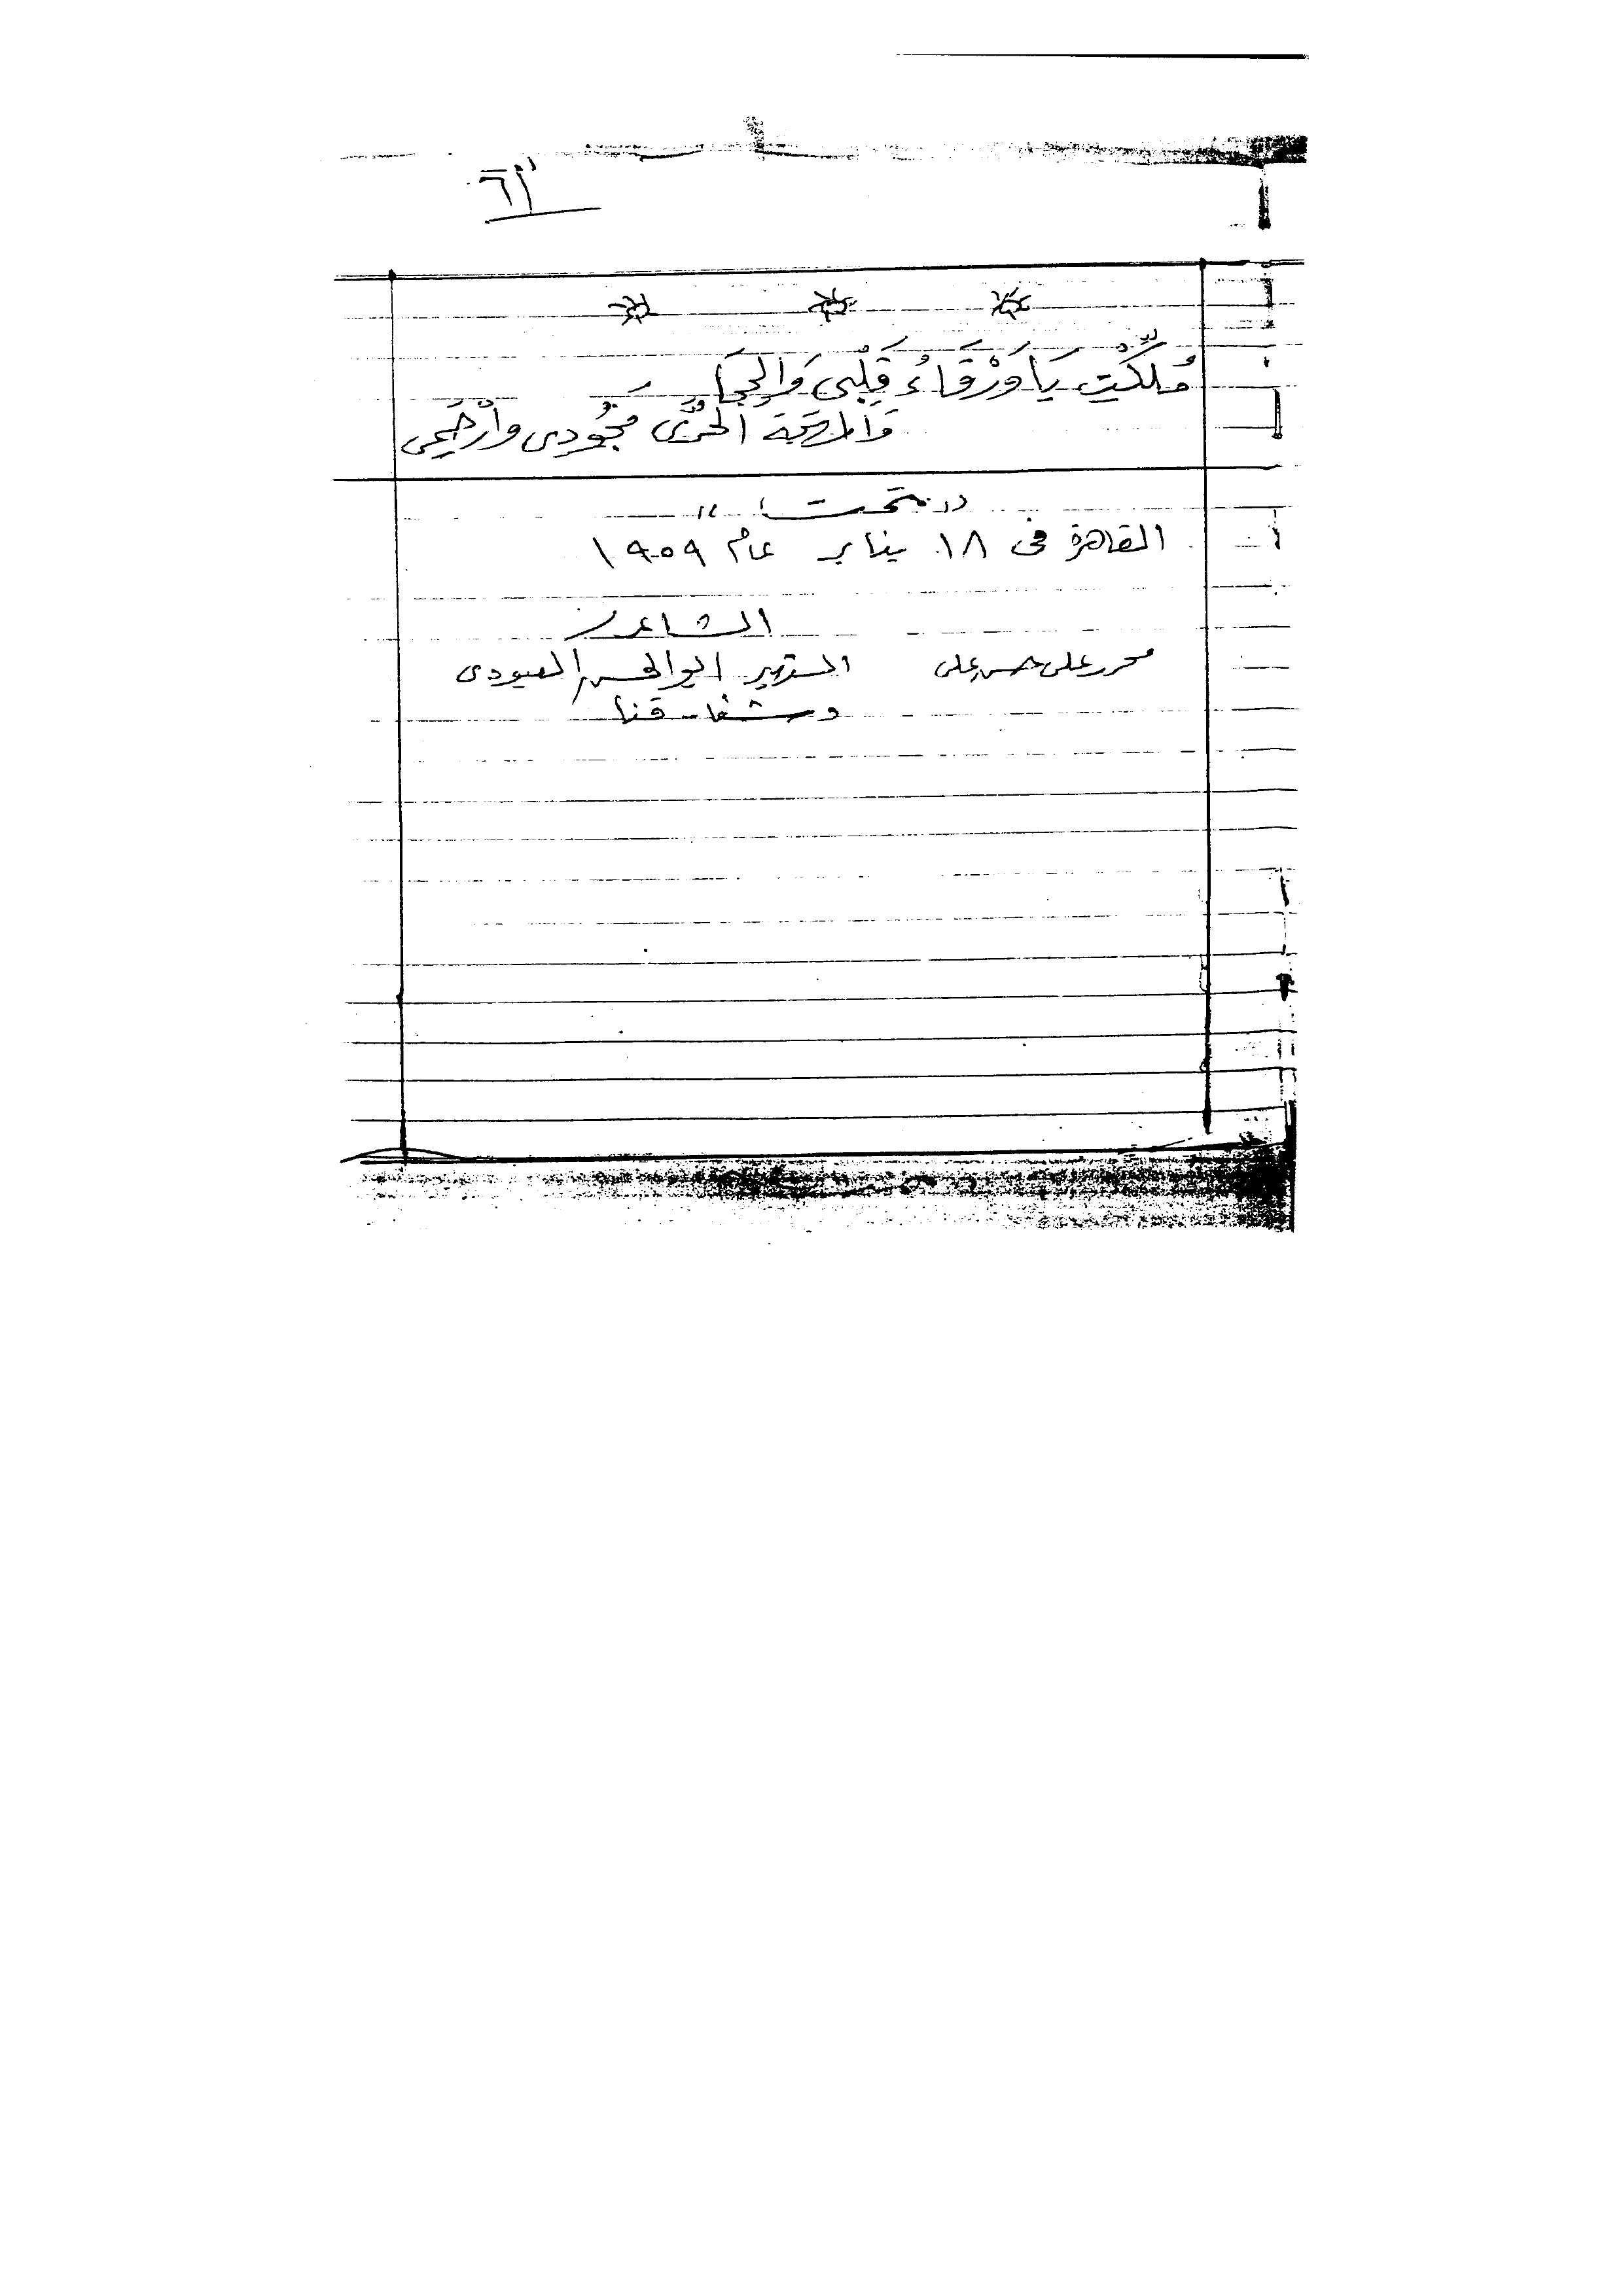 ٦٣
مُلِّكْتِ يَا وَرْقَاءُ قَلْبِى وَالحِجَا
وَالمهجة الحرَّى فجُودى وارْحَمِى
" تمت "
القاهرة فى ١٨ يناير عام ١٩٥٩
الشاعر
محمد على حسن على الشهير ابو الحسن العبودى
دشنا - قنا